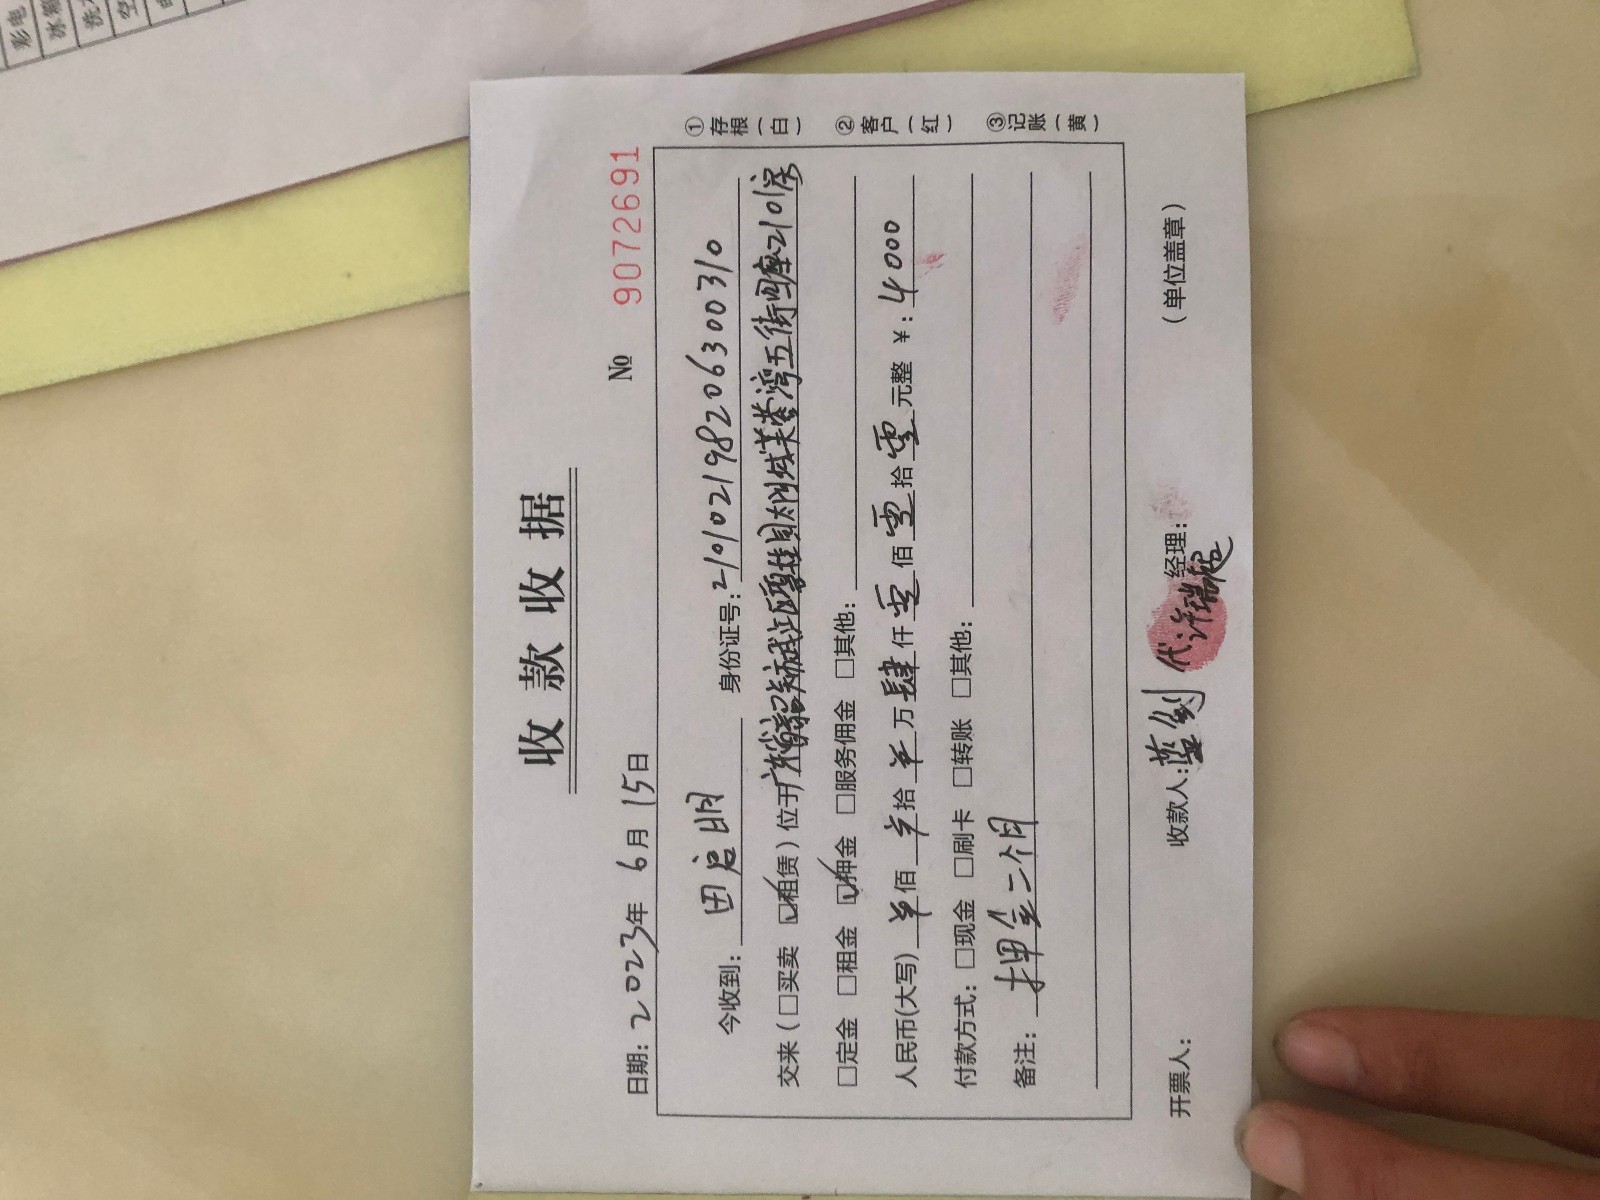 收款收据
No 9072691
日期: 2023年 6月 15日
①存根(白) ②客户(红) ③记账(黄)
今收到: 田启明 身份证号: 210102198206300310
交来(□买卖 ☑租赁)位于广东省韶关市武江区碧桂园太阳城芙蓉湾五街四座2101房
□定金 □租金 ☑押金 □服务佣金 □其他:
人民币(大写) 佰 拾 万肆仟零佰零拾零元整 ¥: 4000
付款方式: □现金 □刷卡 □转账 □其他:
备注: 押金二个月
开票人: 收款人: 蓝剑 代许瑞超 经理: (单位盖章)
彩电
冰箱
洗
空